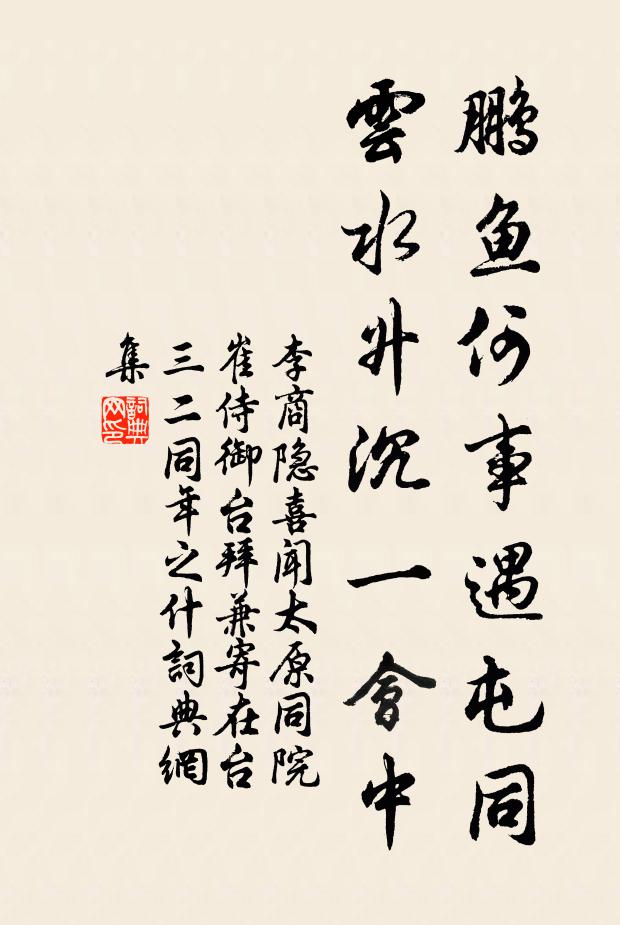 鹏鱼何事遇屯同
雲水升沉一會中
李商隐喜闻太原同院
崔侍御台拜兼寄在台
三二同年之什詞典網
集
詞典
网印